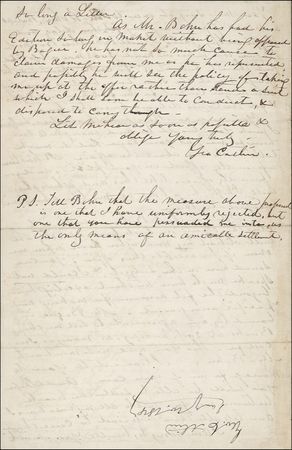 So long a Letter.
As Mr. Bohn has had his
Edition so long in Market without being opposed
by Bogue. He has not so much cause to
claim damages from me as he has represented
and possibly he will see the policy of taking
me up at the offer rather than render a suit
which I shall soon be able to conduct, &
disposed to carry through.
Let me hear as soon as possible &
oblige yours truly
Geo Catlin.
P.S. Tell Bohn that the measure above proposed
is one that I have uniformly rejected, but
one that you have persuaded me into, as
the only means of an amicable settlemt.
Geo. Catlin